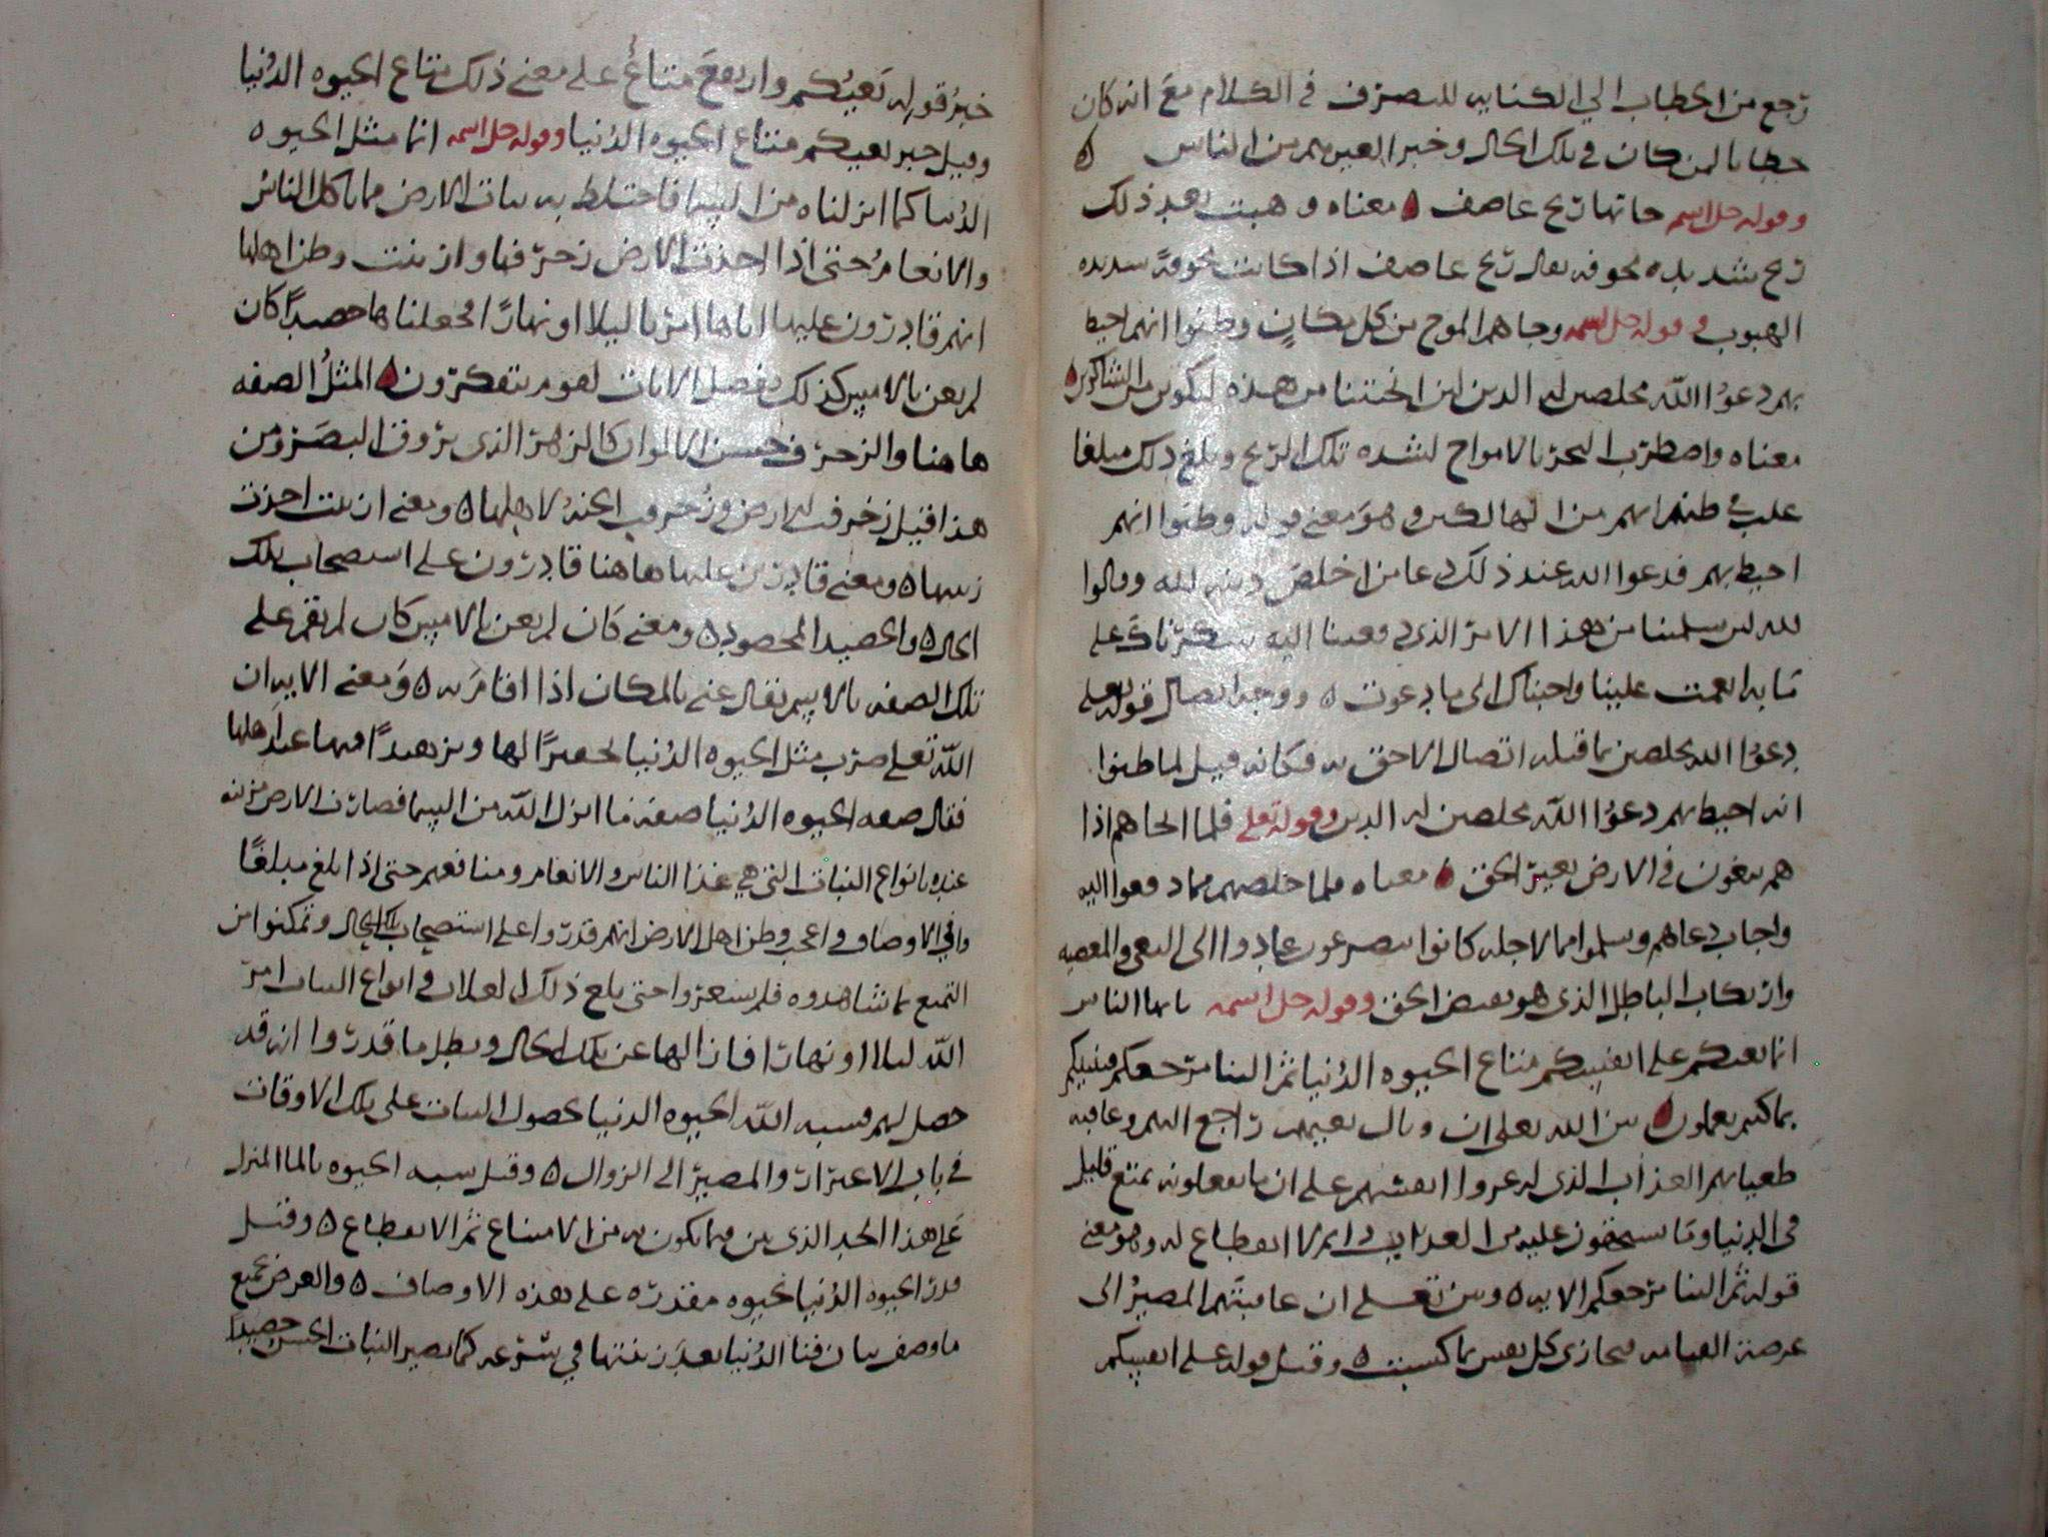 رجع من الخطاب الي الكنايه للتصرف في الكلام مع انه كان
خطابا لمن كان في تلك الحال وخبرا لغيرهم من الناس ه
وقوله جل اسمه جاتها ريح عاصف ه معناه وهبت بعد ذلك
ريح شديده مخوفه يقال ريح عاصف اذا كانت مخوفة شديده
الهبوب في قوله جل اسمه وجاهم الموج من كل مكان وظنوا انهم احيط
بهم دعوا الله مخلصين له الدين لئن انجيتنا من هذه لنكونن من الشاكرين ه
معناه واضطرب البحر بالامواج لشده تلك الريح وبلغ ذلك مبلغا
غلب في ظنهم انهم من الهالكين وهو معني قوله وظنوا انهم
احيط بهم فدعوا الله عند ذلك دعا من اخلص دينه لله وقالوا
لله لئن سلمتنا من هذا الامر الذي دفعنا اليه شكرناك علي
ما به انعمت علينا واجبناك الي ما دعوت ه ووجه اتصال قوله تعلي
دعوا الله مخلصين بما قبله اتصال الاحق به فكانه قيل لما ظنوا
انه احيط بهم دعوا الله مخلصين له الدين وقوله تعلي فلما انجاهم اذا
هم يبغون في الارض بغير الحق ه معناه فلما خلصهم مما دفعوا اليه
واجاب دعاهم وسلموا مما لاجله كانوا يتضرعون عادوا الي البغي والمعصيه
وارتكاب الباطل الذي هو نقيض الحق وقوله جل اسمه يايها الناس
انما بغيكم علي انفسكم متاع الحيوه الدنيا ثم الينا مرجعكم فننبيكم
بما كنتم تعملون ه بين الله تعلي ان وبال بغيهم راجع اليهم وعاقبه
طغيانهم العذاب الذي له عرضوا انفسهم علي ان ما يفعلونه تمتع قليل
في الدنيا وما يستحقون عليه من العذاب دايم لا انقطاع له وهو معني
قوله ثم الينا مرجعكم الايه ه وبين تعلي ان عاقبتهم المصير الي
عرصة القيامه فيجازي كل نفس بما كسبت ه وقيل قوله علي انفسكم
خبر قوله بغيكم وارتفع متاع علي معني ذلك متاع الحيوه الدنيا
وقيل خبر بغيكم متاع الحيوه الدنيا وقوله جل اسمه انما مثل الحيوه
الدنيا كما انزلناه من السما فاختلط به نبات الارض مما ياكل الناس
والانعام حتي اذا اخذت الارض زخرفها وازينت وظن اهلها
انهم قادرون عليها اتاها امرنا ليلا او نهارا فجعلناها حصيدا كان
لم يغن بالامس كذلك نفصل الايات لقوم يتفكرون ه المثل الصفه
هاهنا والزخرف حسن الالوان كالزهر الذي يروق البصر ومن
هذا قيل زخرفت الارض وزخرفت الجنه لاهلها ه ومعني ازينت اخذت
زينتها ه ومعني قادرين عليها هاهنا قادرون علي استصحاب تلك
الحال ه والحصيد المحصود ه ومعني كان لم يغن بالامس كان لم يقم علي
تلك الصفه بالامس يقال غني بالمكان اذا اقام به ه ومعني الايه ان
الله تعلي ضرب مثل الحيوه الدنيا تحقيرا لها وتزهيدا فيها عند اهلها
فقال صفه الحيوه الدنيا صفه ما انزل الله من السما فصارت الارض مزينه
عنده بانواع النبات التي هي غذا الناس والانعام ومنافعهم حتي اذا بلغ مبلغا
وافي الاوصاف واعجب وظن اهل الارض انهم قدروا علي استصحاب تلك الحال وتمكنوا من
التمتع بما شاهدوه فلم يشعروا حتي بلغ ذلك في انواع النبات امر
الله ليلا او نهارا فازالها عن تلك الحال وبطل ما قدروا انه قد
حصل لهم فشبه الله الحيوه الدنيا بحصول النبات علي تلك الاوقات
في باب الاغترار والمصير الي الزوال ه وقيل شبه الحيوه بالما المنزل
علي هذا الحد الذي بين فيما يكون به من الامتناع ثم الانقطاع ه وقيل
الحيوه الدنيا بحيوه مقدره علي هذه الاوصاف ه والغرض بجميع
ما وصف بيان فنا الدنيا بعد زينتها في سرعه كما يصير النبات الحسن حصيدا